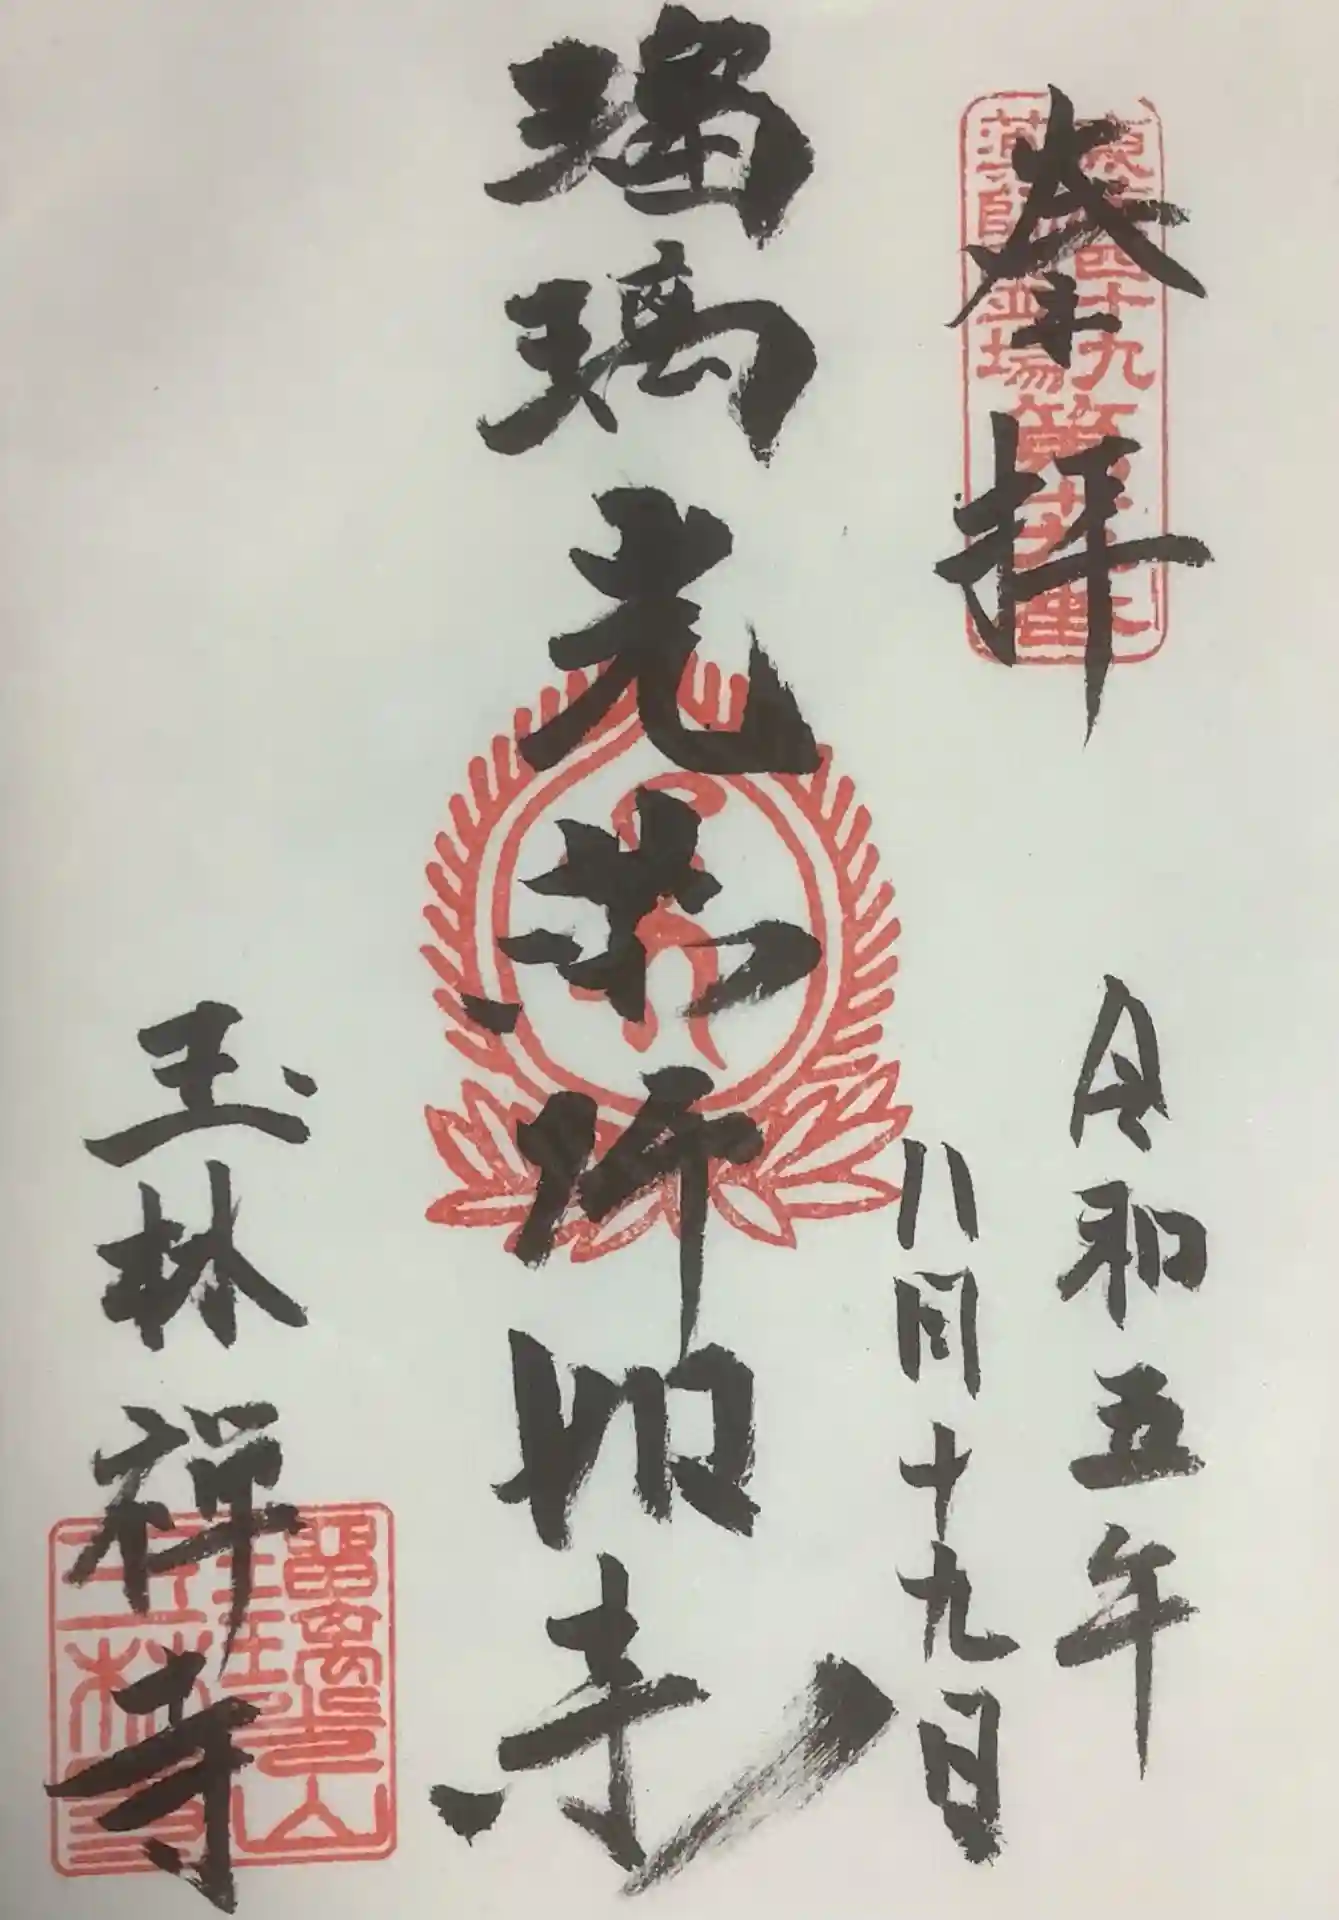 奉拝
東海四十九
薬師霊場
令和五年
八月十九日
瑠璃光薬師如来
玉林禅寺
瑠璃光山
玉林寺